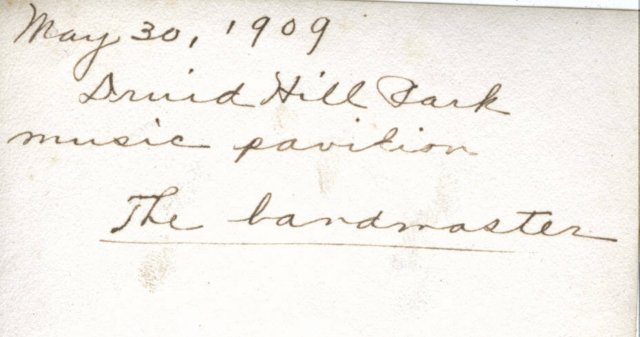 May 30, 1909
Druid Hill Park
music pavilion
The bandmaster